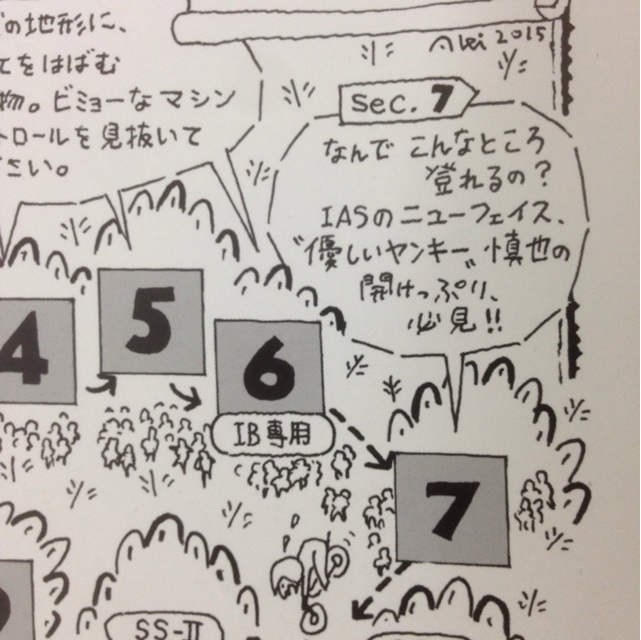 の地形に、
をはばむ
物。ビミョーなマシン
トロールを見抜いて
さい。
2015
sec. 7
なんで こんなところ
登れるの?
IASのニューフェイス、
“優しいヤンキー”慎也の
開けっぷり、
必見!!
4
5
6
IB専用
7
SS-Ⅱ